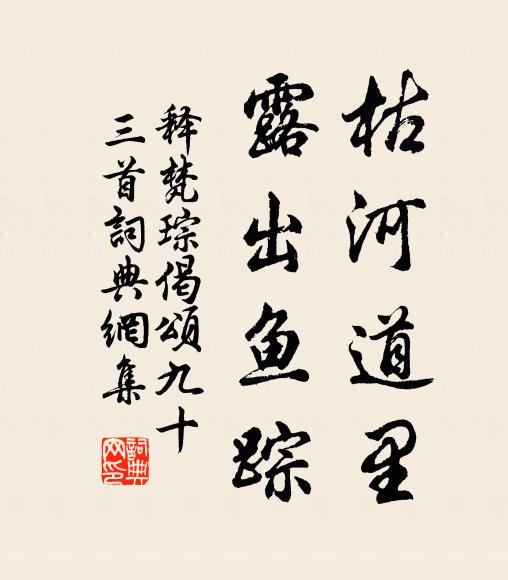 枯河道里
露出鱼踪
释梵琮偈颂九十
三首詞典網集
詞典網印